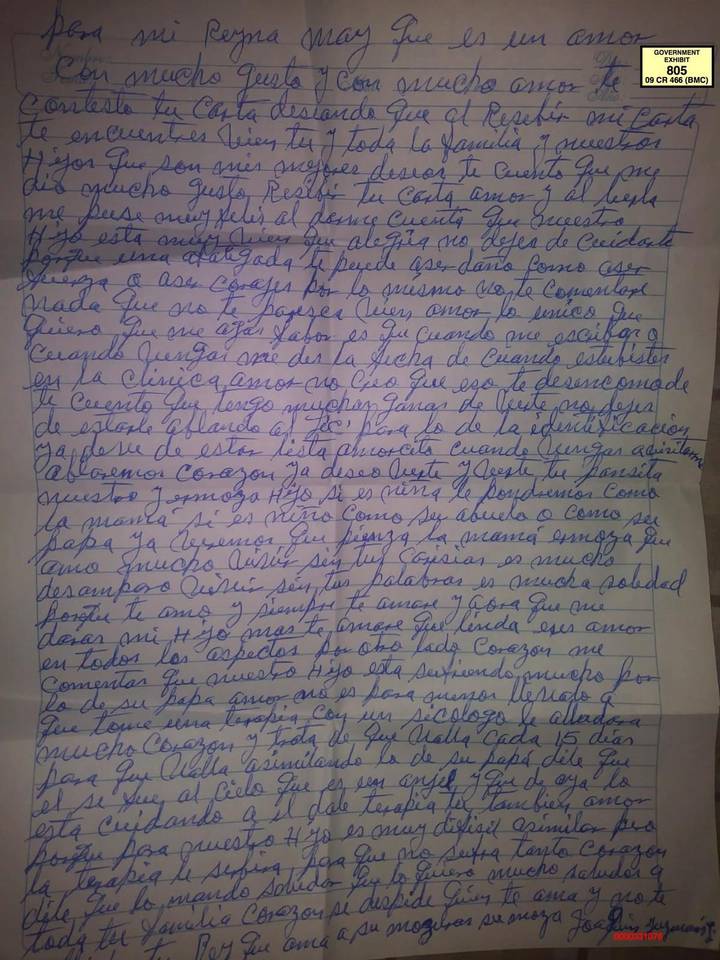 para mi Reyna may que es un amor
GOVERNMENT
EXHIBIT
805
09 CR 466 (BMC)
Con mucho gusto y con mucho amor te
Contesto tu Carta deseando que al Resebir mi Carta
te encuentres vien tu y toda la familia y nuestros
Hijos que son mis mejores deseos te cuento que me
dio mucho gusto Resebir tu carta amor y al leerla
me puse muy felis al darme cuenta que nuestro
Hijo esta muy vien que alegria no dejes de cuidarte
porque una te puede aser daño como aser
fuerza o aser corajes por lo mismo no te comentare
nada que no te paresca vien amor lo unico que
quiero que me agas fabor es que cuando me escribas o
cuando vengas me des la fecha de cuando estubistes
en la clinica amor no creo que eso te desencomode
te cuento que tengo muchas ganas de verte no dejes
de estarle ablando al para lo de la identificacion
ya deve de estar lista amorcito cuando vengas
ablaremos corazon ya deseo verte y verte tu pansita
nuestro y ermoza Hijo si es niña le pondremos como
la mamá si es niño como su abuelo o como su
papa ya veremos que pienza la mamá ermoza que
amo mucho vivir sin tus carisias es mucho
desamparo vivir sin tus palabras es mucha soledad
porque te amo y siempre te amare y aora que me
daras mi Hijo mas te amare que linda eres amor
en todos los aspectos por otro lado corazon me
comentas que nuestro Hijo esta sufriendo mucho por
lo de su papa amor no es para menos llevalo a
que tome una terapia con un sicologo le alludara
mucho Corazon y trata de que valla cada 15 dias
para que valla asimilando lo de su papá dile que
el se fue al cielo que es un angel y que de aya lo
esta cuidando a el dale terapia tu tambien amor
porque para nuestro Hijo es muy difisil asimilar pero
la terapia le serbira para que no sufra tanto Corazon
dile que lo mando saludar que lo quiero mucho saludos a
toda tu familia Corazon se despide quien te ama y no te
tu Rey que ama a su su moza Joaquin Guzman